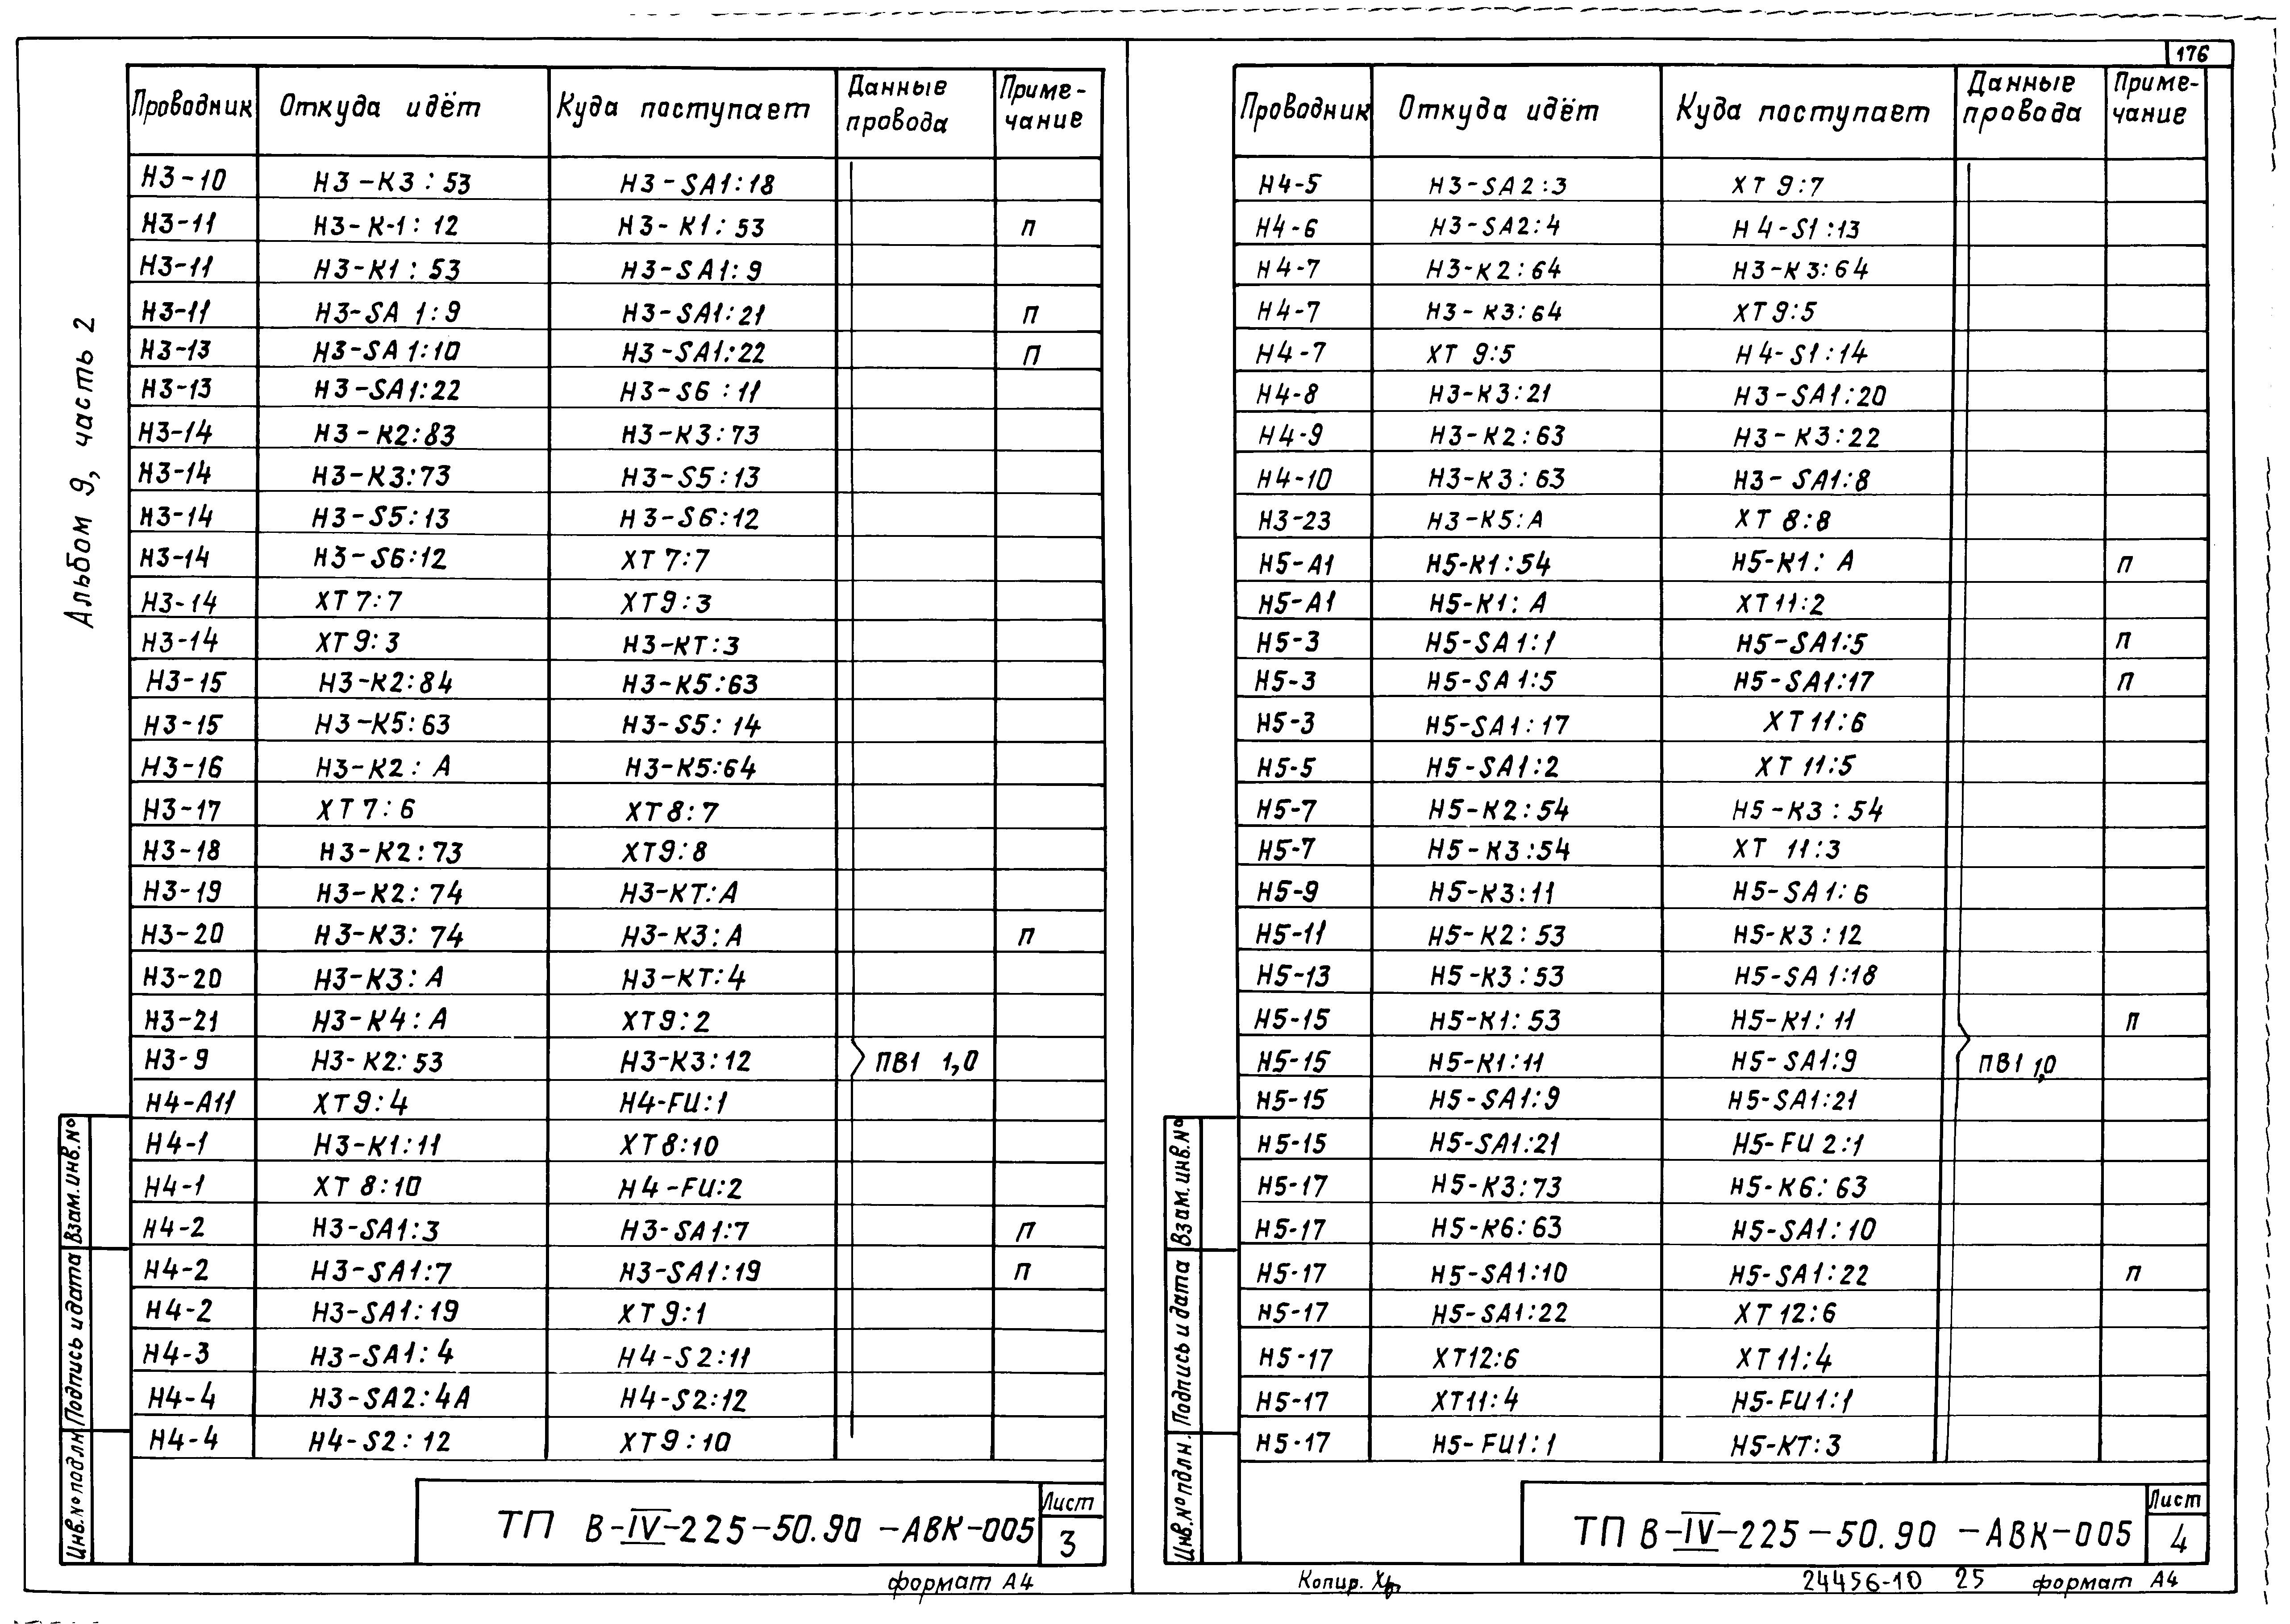 176
Альбом 9, часть 2
Проводник Откуда идёт Куда поступает Данные провода Приме-чание
Н3-10 Н3-К3:53 Н3-SA1:18
Н3-11 Н3-К-1:12 Н3-К1:53 П
Н3-11 Н3-К1:53 Н3-SA1:9
Н3-11 Н3-SA 1:9 Н3-SA1:21 П
Н3-13 Н3-SA1:10 Н3-SA1:22 П
Н3-13 Н3-SA1:22 Н3-S6:11
Н3-14 Н3-К2:83 Н3-К3:73
Н3-14 Н3-К3:73 Н3-S5:13
Н3-14 Н3-S5:13 Н3-S6:12
Н3-14 Н3-S6:12 ХТ7:7
Н3-14 ХТ7:7 ХТ9:3
Н3-14 ХТ9:3 Н3-КТ:3
Н3-15 Н3-К2:84 Н3-К5:63
Н3-15 Н3-К5:63 Н3-S5:14
Н3-16 Н3-К2:А Н3-К5:64
Н3-17 ХТ7:6 ХТ8:7
Н3-18 Н3-К2:73 ХТ9:8
Н3-19 Н3-К2:74 Н3-КТ:А
Н3-20 Н3-К3:74 Н3-К3:А П
Н3-20 Н3-К3:А Н3-КТ:4
Н3-21 Н3-К4:А ХТ9:2
Н3-9 Н3-К2:53 Н3-К3:12 ПВ1 1,0
Н4-А11 ХТ9:4 Н4-FU:1
Н4-1 Н3-К1:11 ХТ8:10
Н4-1 ХТ8:10 Н4-FU:2
Н4-2 Н3-SA1:3 Н3-SA1:7 П
Н4-2 Н3-SA1:7 Н3-SA1:19 П
Н4-2 Н3-SA1:19 ХТ9:1
Н4-3 Н3-SA1:4 Н4-S2:11
Н4-4 Н3-SA2:4А Н4-S2:12
Н4-4 Н4-S2:12 ХТ9:10
Взам. инв.№
Подпись и дата
Инв.№ подлн
ТП В-IV-225-50.90-АВК-005
Лист
3
формат А4
Проводник Откуда идёт Куда поступает Данные провода Приме-чание
Н4-5 Н3-SA2:3 ХТ9:7
Н4-6 Н3-SA2:4 Н4-S1:13
Н4-7 Н3-К2:64 Н3-К3:64
Н4-7 Н3-К3:64 ХТ9:5
Н4-7 ХТ9:5 Н4-S1:14
Н4-8 Н3-К3:21 Н3-SA1:20
Н4-9 Н3-К2:63 Н3-К3:22
Н4-10 Н3-К3:63 Н3-SA1:8
Н3-23 Н3-К5:А ХТ8:8
Н5-А1 Н5-К1:54 Н5-К1:А П
Н5-А1 Н5-К1:А ХТ11:2
Н5-3 Н5-SA1:1 Н5-SA1:5 П
Н5-3 Н5-SA1:5 Н5-SA1:17 П
Н5-3 Н5-SA1:17 ХТ11:6
Н5-5 Н5-SA1:2 ХТ11:5
Н5-7 Н5-К2:54 Н5-К3:54
Н5-7 Н5-К3:54 ХТ 11:3
Н5-9 Н5-К3:11 Н5-SA1:6
Н5-11 Н5-К2:53 Н5-К3:12
Н5-13 Н5-К3:53 Н5-SA1:18
Н5-15 Н5-К1:53 Н5-К1:11 П
Н5-15 Н5-К1:11 Н5-SA1:9 ПВ1 1,0
Н5-15 Н5-SA1:9 Н5-SA1:21
Н5-15 Н5-SA1:21 Н5-FU2:1
Н5-17 Н5-К3:73 Н5-К6:63
Н5-17 Н5-К6:63 Н5-SA1:10
Н5-17 Н5-SA1:10 Н5-SA1:22 П
Н5-17 Н5-SA1:22 ХТ12:6
Н5-17 ХТ12:6 ХТ11:4
Н5-17 ХТ11:4 Н5-FU1:1
Н5-17 Н5-FU1:1 Н5-КТ:3
Взам. инв.№
Подпись и дата
Инв.№ подлн.
ТП В-IV-225-50.90-АВК-005
Лист
4
Копир. 24456-10 25 формат А4